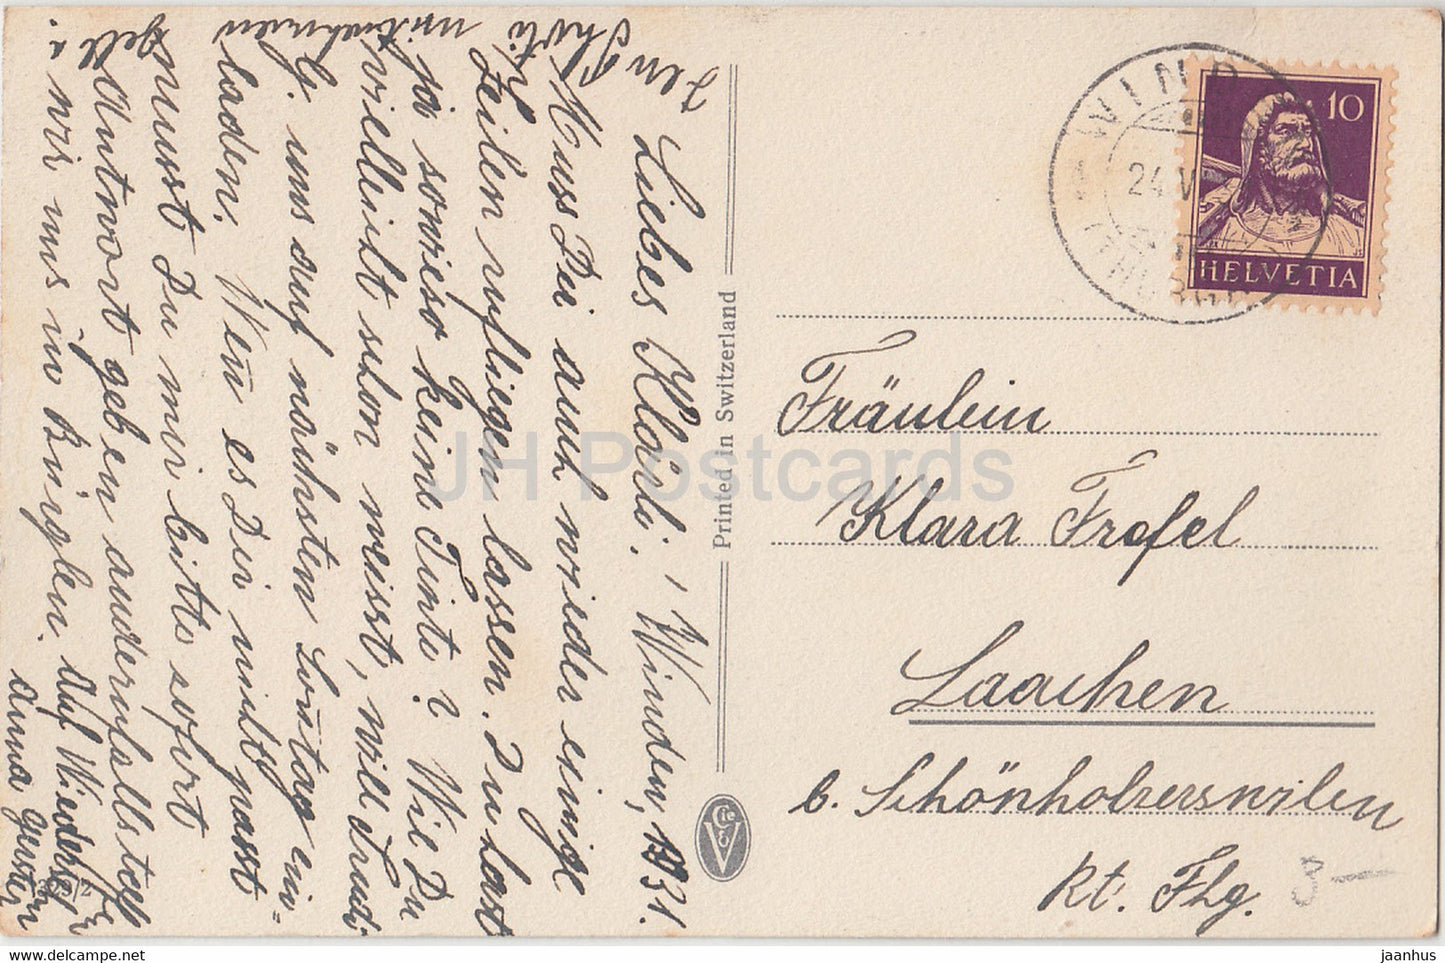 Liebes Klärli!
Winden, 1931.
Muss Dir auch wieder einige
Zeilen zufliegen lassen. Du hast
ja sowieso keine Tinte? Wie Du
vielleicht schon weisst, will Trudi
G. uns auf nächsten Sontag ein=
laden. Wen̄ es Dir nicht passt
musst Du mir bitte sofort
Antwort geben andernfalls treffen
wir uns in Bürglen. Auf Wiederseh
Anna
mitnehmen
gell
Printed in Switzerland
VCie
329/2
WIND
24 V
THURG
10
HELVETIA
Fräulein
Klara Frofel
Laachen
b. Schönholzerswilen
Kt. Thg.
3 —
JH Postcards
jaanhus © www.delcampe.net